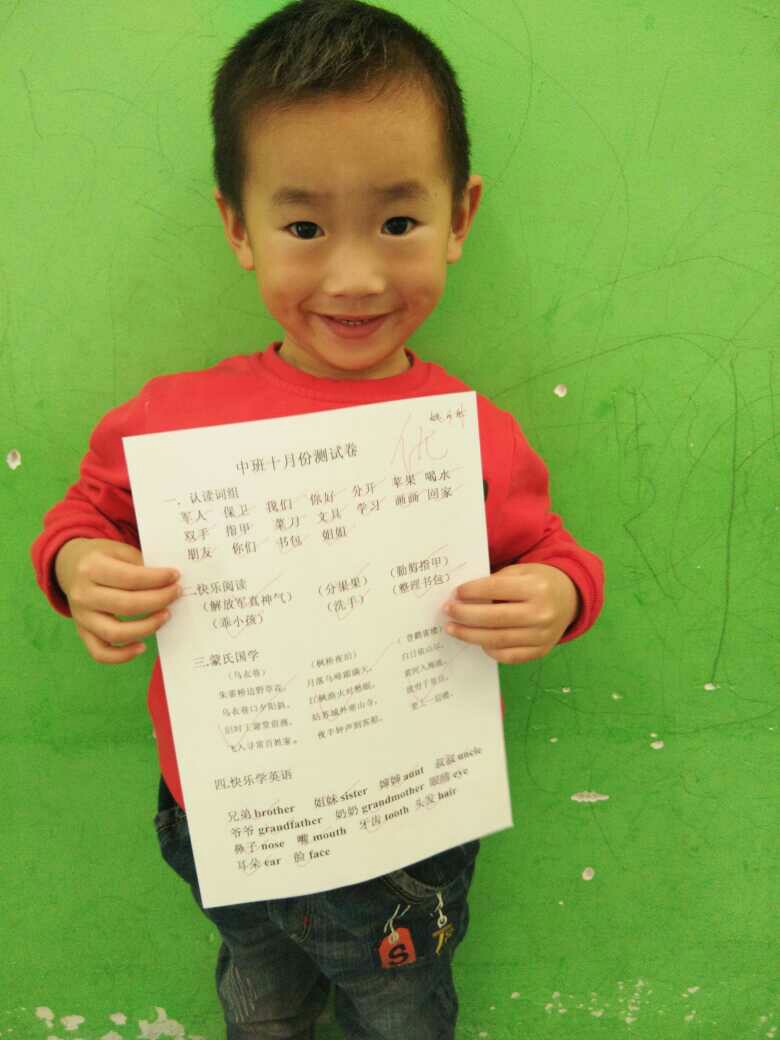 优
中班十月份测试卷
一. 认读词组
军人 保卫 我们 你好 分开 苹果 喝水
双手 指甲 菜刀 文具 学习 画画 回家
朋友 你们 书包 姐姐
二.快乐阅读
（解放军真神气） （分果果） （勤剪指甲）
（乖小孩） （洗手） （整理书包）
三.蒙氏国学
（乌衣巷） （枫桥夜泊） （登鹳雀楼）
朱雀桥边野草花， 月落乌啼霜满天， 白日依山尽，
乌衣巷口夕阳斜。 江枫渔火对愁眠。 黄河入海流。
旧时王谢堂前燕， 姑苏城外寒山寺， 欲穷千里目，
飞入寻常百姓家。 夜半钟声到客船。 更上一层楼。
四.快乐学英语
兄弟 brother 姐妹 sister 婶婶 aunt 叔叔 uncle
爷爷 grandfather 奶奶 grandmother 眼睛 eye
鼻子 nose 嘴 mouth 牙齿 tooth 头发 hair
耳朵 ear 脸 face
S